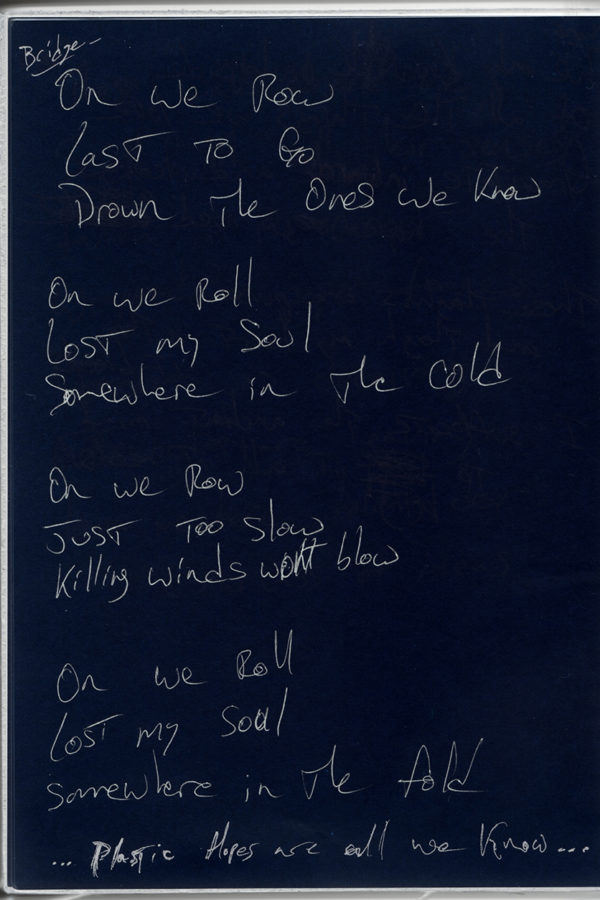 Bridge-
On we Row
Last To Go
Drown The Ones we Know
On we Roll
Lost my Soul
Somewhere in The cold
On we Row
Just Too Slow
Killing winds won't blow
On we Roll
Lost my Soul
Somewhere in The fold
... Plastic Hopes are all we Know...